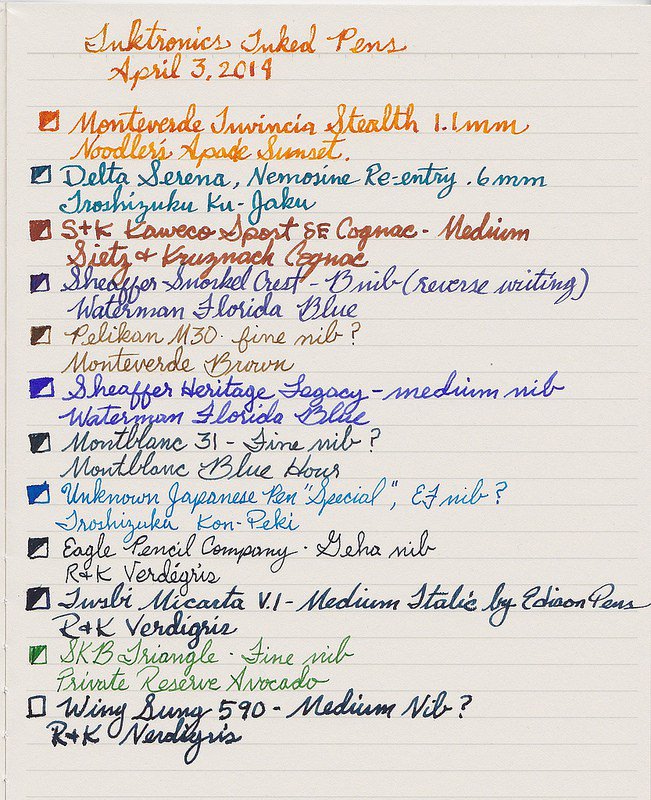 Inktronics Inked Pens
April 3, 2014
Monteverde Invincia Stealth 1.1mm
Noodler's Apache Sunset.
Delta Serena, Nemosine Re-entry .6mm
Iroshizuku Ku-Jaku
S+K Kaweco Sport SE Cognac - Medium
Sietz & Kruznach Cognac
Sheaffer Snorkel Crest - B nib (reverse writing)
Waterman Florida Blue
Pelikan M30 - fine nib?
Monteverde Brown
Sheaffer Heritage Legacy - medium nib
Waterman Florida Blue
Montblanc 31 - Fine nib?
Montblanc Blue Hour
Unknown Japanese Pen "Special", EF nib?
Iroshizuku Kon-Peki
Eagle Pencil Company - Geha nib
R&K Verdigris
Twsbi Micarta V.1 - Medium Italic by Edison Pens
R&K Verdigris
SKB Triangle - Fine nib
Private Reserve Avocado
Wing Sung 590 - Medium Nib?
R&K Verdigris